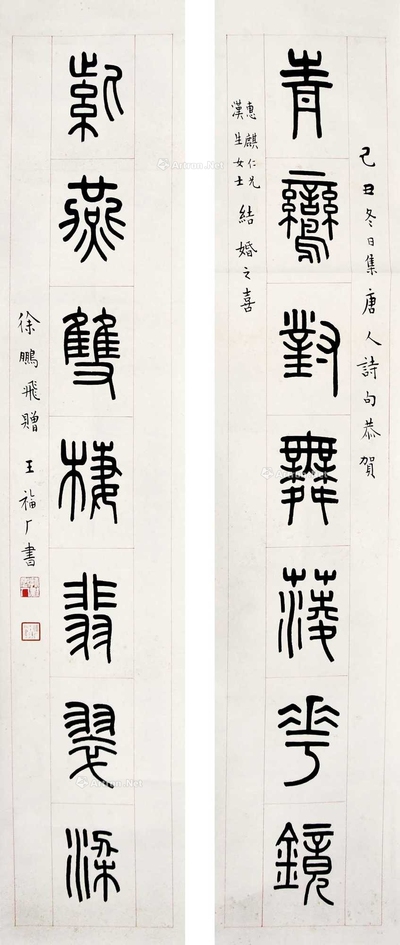 己丑冬日集唐人詩句恭賀
青鸞對舞蔆華鏡
惠麒仁兄
漢生女士
結婚之喜
紫燕雙棲翡翠梁
徐鵬飛贈 王福厂書
Artron.Net
Artron.Net
Artron.Net